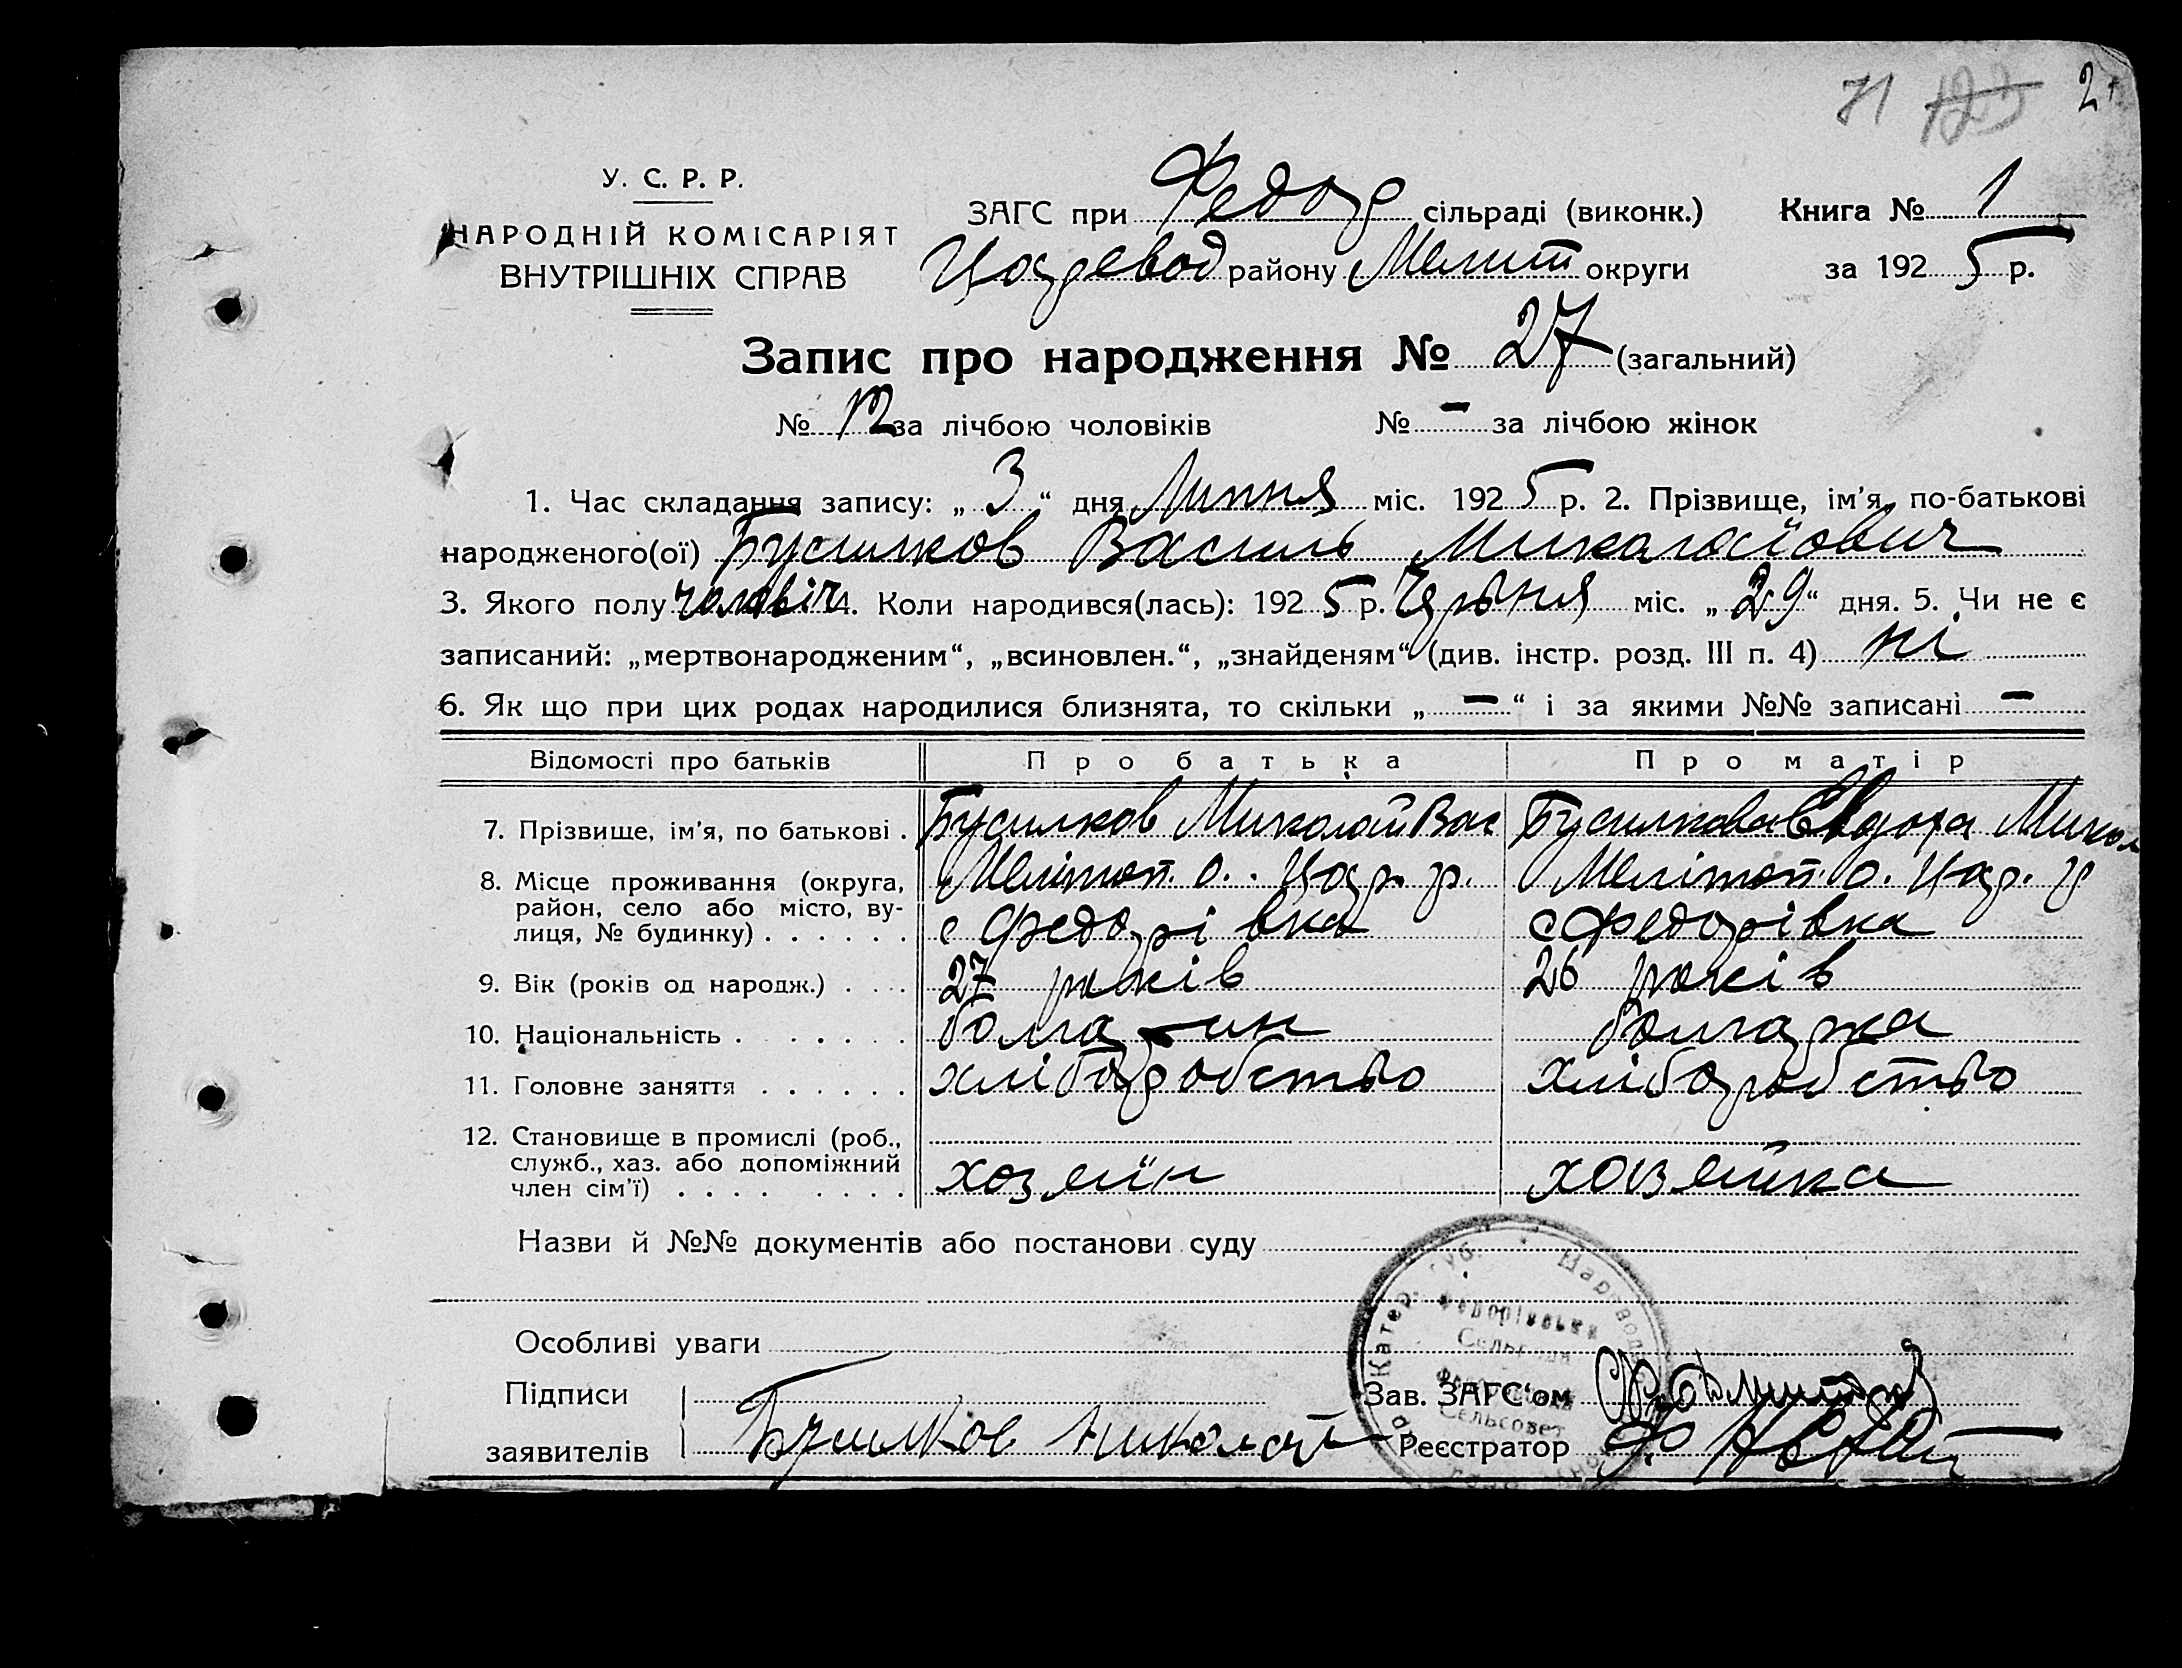 71 123 2
У. С. Р. Р.
НАРОДНІЙ КОМІСАРІЯТ
ВНУТРІШНІХ СПРАВ
ЗАГС при Федор сільраді (виконк.) Книга № 1
Царевод району Мелит округи за 1925 р.
Запис про народження № 27 (загальний)
№ 12 за лічбою чоловіків № – за лічбою жінок
1. Час складання запису: „ 3 “ дня Липня міс. 1925 р. 2. Прізвище, ім'я, по-батькові
народженого(ої) Бусилков Василь Миколайович
3. Якого полу чоловіч 4. Коли народився(лась): 1925 р. Червня міс. „ 29 “ дня. 5. Чи не є
записаний: „мертвонародженим“, „всиновлен.“, „знайденям“ (див. інстр. розд. III п. 4) ні
6. Як що при цих родах народилися близнята, то скільки „ – “ і за якими №№ записані –
Відомості про батьків Про батька Про матір
7. Прізвище, ім'я, по батькові . Бусилков Миколай Вас Бусилкова Евдоха Микол
8. Місце проживання (округа, район, село або місто, ву- лиця, № будинку) . . . . . . Мелітоп. о. Цар. р. с Федорівка Мелітоп. о. Цар. р с Федорівка
9. Вік (років од народж.) . . . 27 років 26 років
10. Національність . . . . . . болгарин болгарка
11. Головне заняття . . . . . . хліборобство хліборобство
12. Становище в промислі (роб., служб., хаз. або допоміжний член сім'ї) . . . . . . . . хозяїн хозяйка
Назви й №№ документів або постанови суду
Особливі уваги
Катер. губ. Царевод
Федорівська
Сельсовет
Підписи
заявителів Бусилков Николай
Зав. ЗАГС'ом
Реєстратор